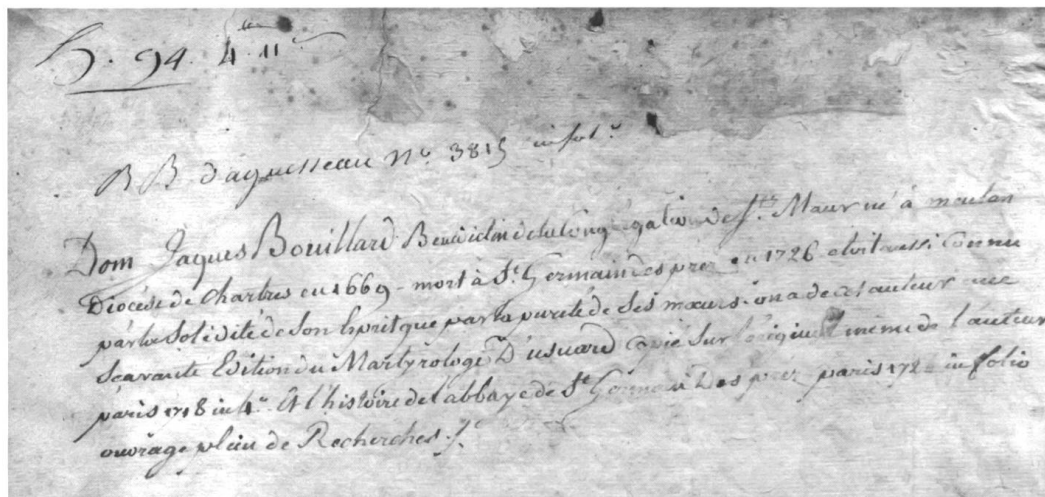 h. 94. 4. 11
B B Daguesseau n.º 3815 in fol.º
Dom Jaques Bouillard Benedictin de la Congrégation de St. Maur né à meulan
Diocèse de Chartres en 1669 - mort à St. Germain des prez en 1726 etoit aussi Connu
par la solidité de son Esprit que par la pureté de ses mœurs. on a de cet auteur une
sçavante Edition du Martyrologe D'usuard Copié sur l'original même de l'auteur
paris 1718 in 4.º Et l'histoire de l'abbaye de St. Germain des prez paris in folio
ouvrage plein de Recherches.